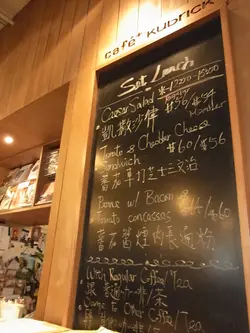 café+ KUBRICK
Set Lunch
Caesar Salad
凱撒沙律
$56/$54
Member
Tomato & Cheddar Cheese
Sandwich
$60/$56
蕃茄車打芝士三文治
Penne w/ Bacon &
Tomato concassas
蕃茄醬煙肉長通粉
With Regular Coffee/Tea
跟 普通咖啡/茶
Change to Other Coffee/